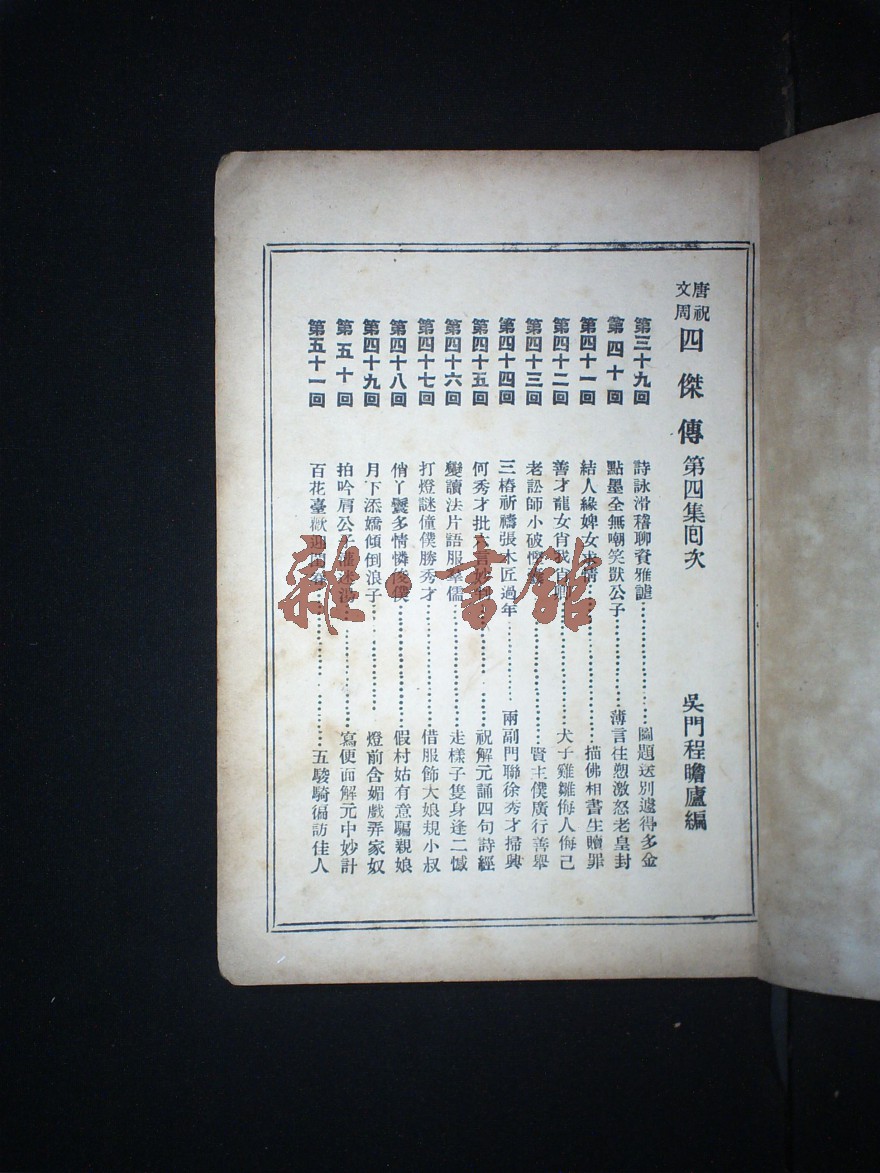 唐祝文周四傑傳 第四集回次 吳門程瞻廬編
第三十九回 詩詠滑稽聊資雅謔 圖題送別遽得多金
第四十回 點墨全無嘲笑獃公子 薄言往愬激怒老皇封
第四十一回 結人緣婢女求情 描佛相書生贖罪
第四十二回 善才龍女肖我 犬子雞雛侮人侮己
第四十三回 老訟師小破慳囊 賢主僕廣行善舉
第四十四回 三樁祈禱張木匠過年 兩副門聯徐秀才掃興
第四十五回 何秀才批六言妙判 祝解元誦四句詩經
第四十六回 變讀法片語服羣儒 走樣子隻身逢二憾
第四十七回 打燈謎僮僕勝秀才 借服飾大娘規小叔
第四十八回 俏丫鬟多情憐俊僕 假村姑有意騙親娘
第四十九回 月下添嬌傾倒浪子 燈前含媚戲弄家奴
第五十回 拍吟肩公子 寫便面解元中妙計
第五十一回 百花臺歡迎 五駿騎徧訪佳人
雜·書館